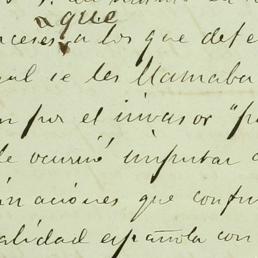 que
nceses a los que defe
ual se les llamaba
n por el invasor "p
le ocurrió imputar a
naciones que confu
alidad española con